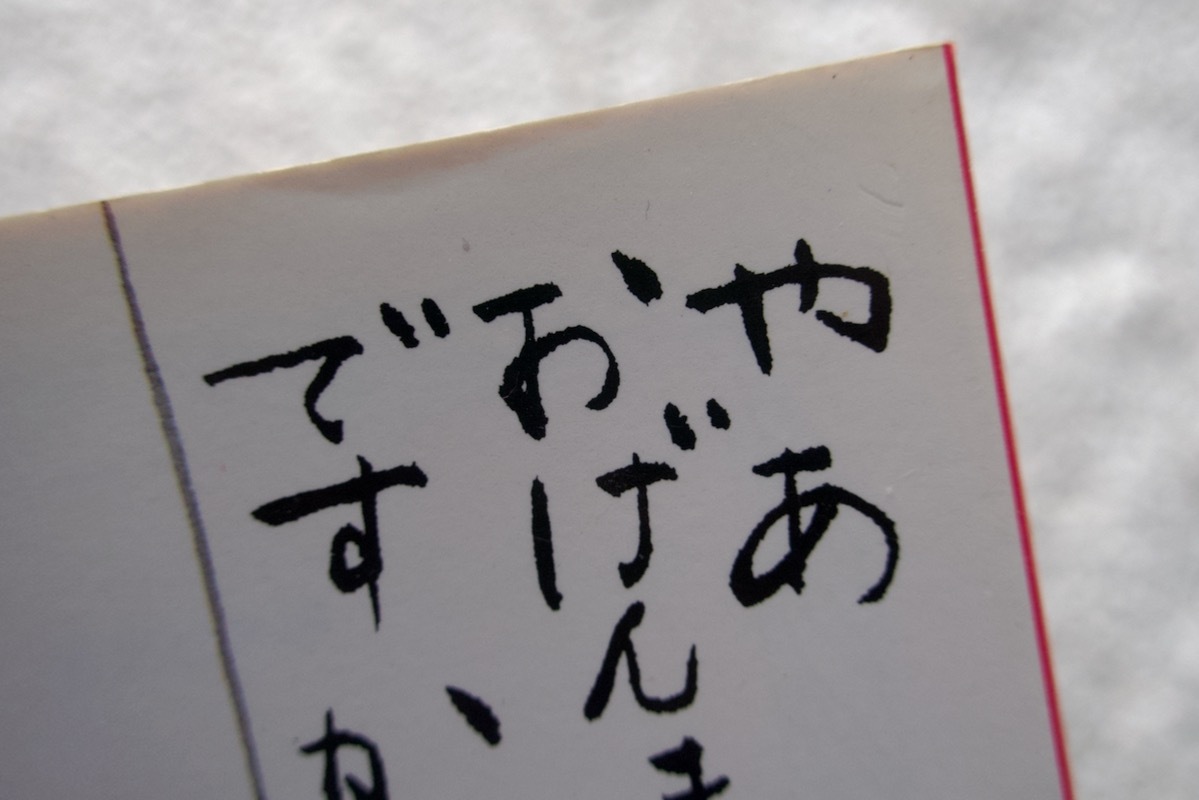 やあ
おげんき
ですか